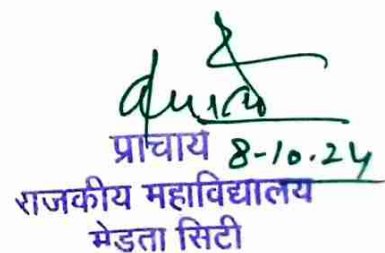 प्राचार्य 8-10.24
राजकीय महाविद्यालय
मेडता सिटी